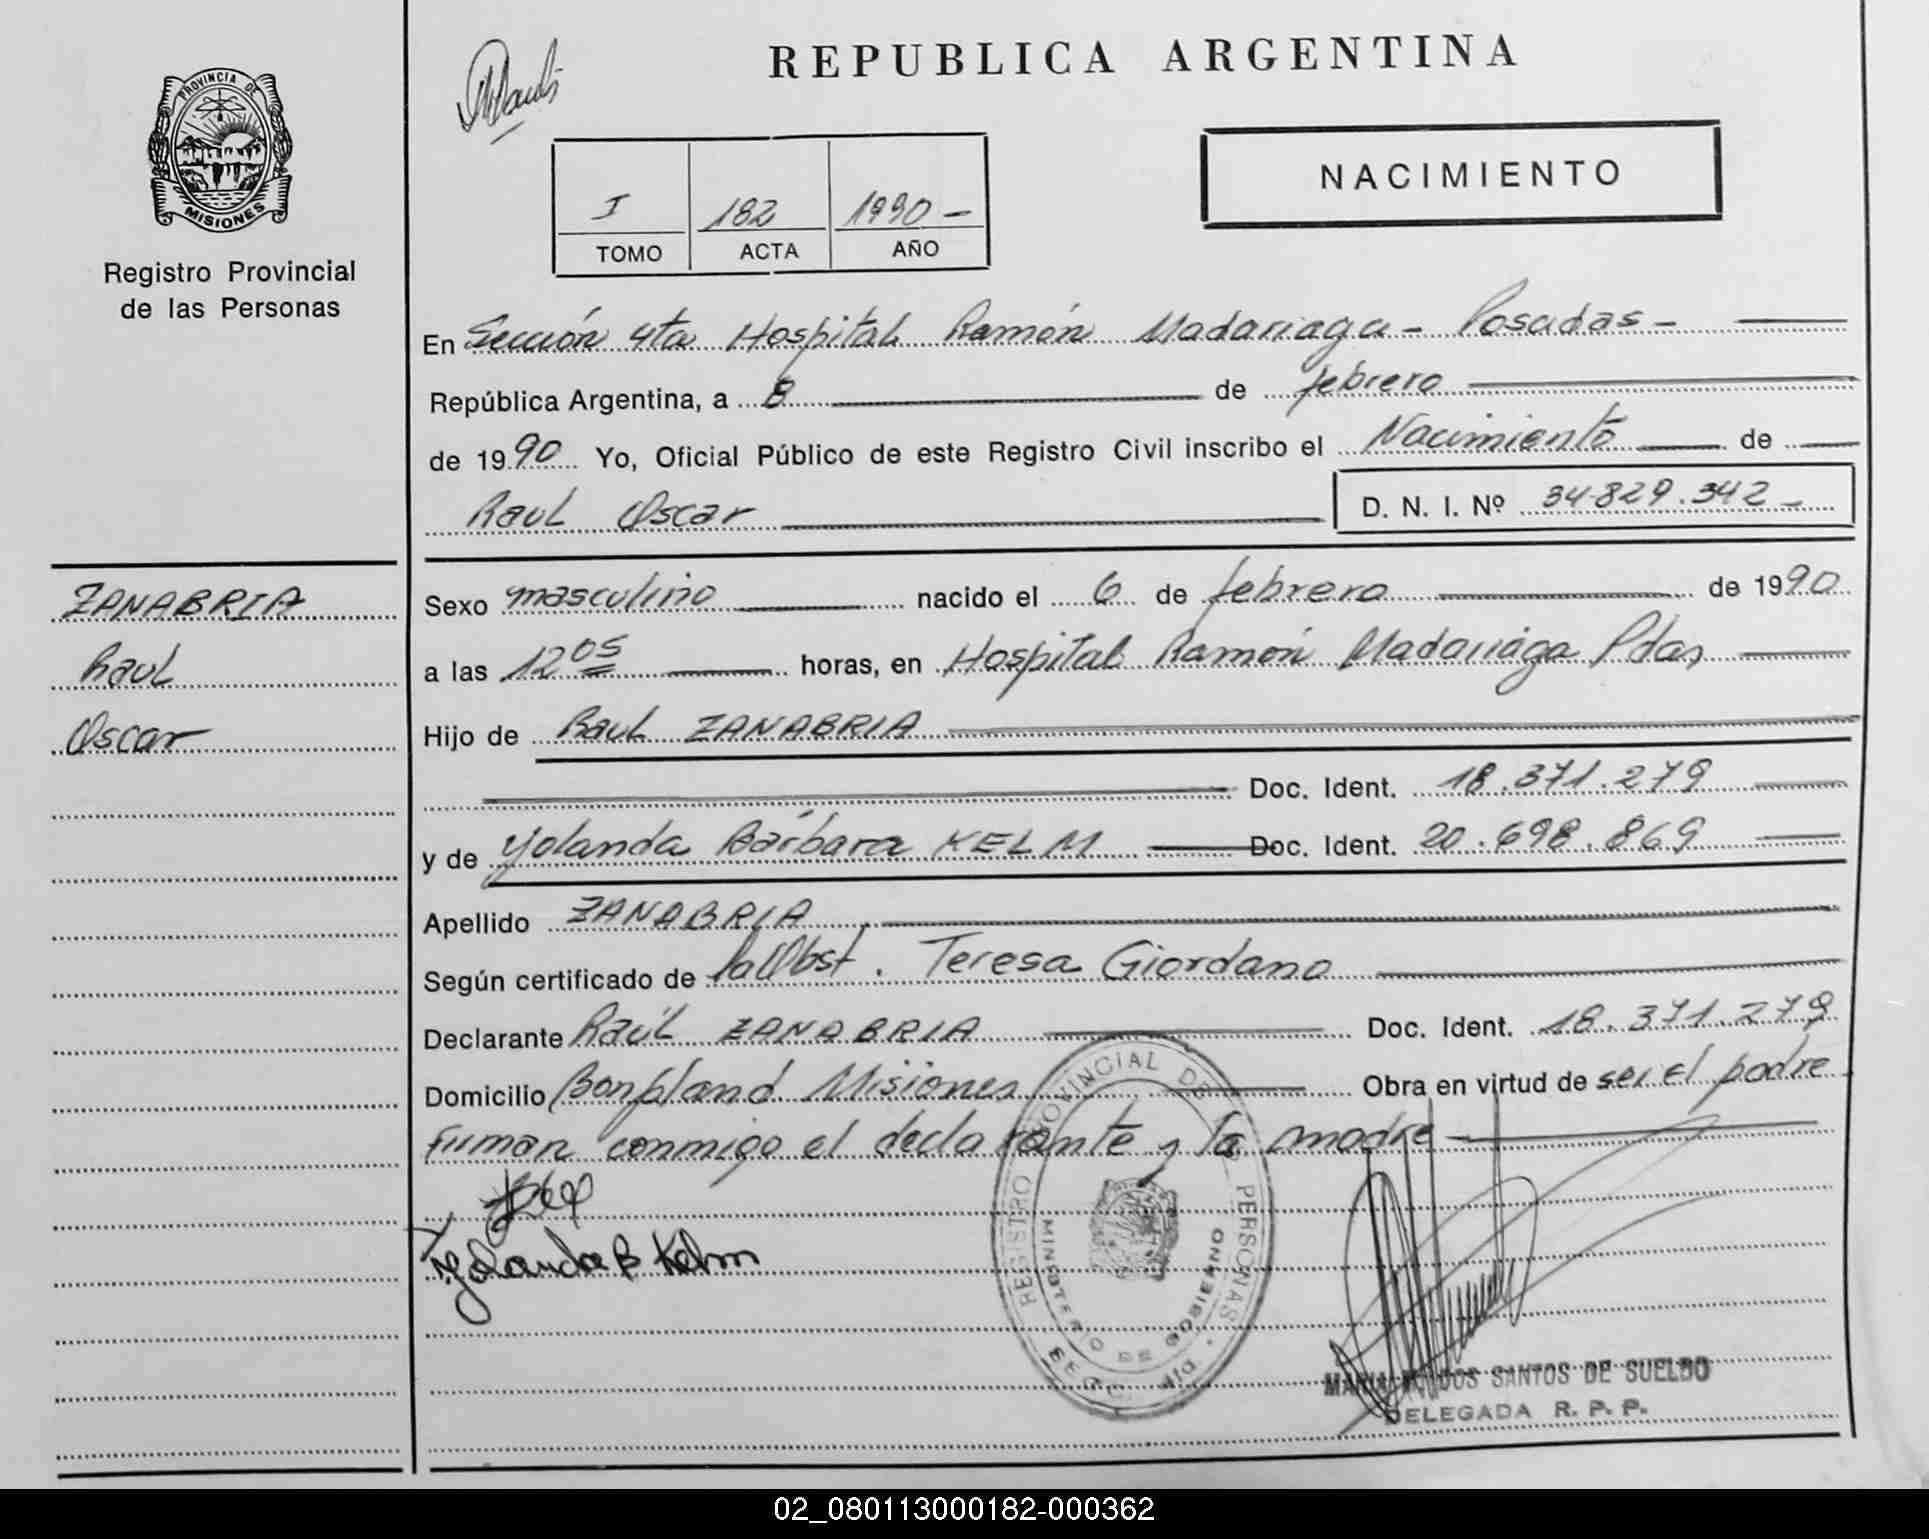 REPUBLICA ARGENTINA
PROVINCIA DE
MISIONES
Registro Provincial
de las Personas
I 182 1990 -
TOMO ACTA AÑO
NACIMIENTO
En Sección 4ta Hospital Ramón Madariaga - Posadas -
República Argentina, a 8 de febrero
de 1990 Yo, Oficial Público de este Registro Civil inscribo el Nacimiento de
Raul Oscar D. N. I. Nº 34.829.342 -
ZANABRIA
Raul
Oscar
Sexo masculino nacido el 6 de febrero de 1990
a las 12 05 horas, en Hospital Ramón Madariaga Pdas
Hijo de Raul ZANABRIA
Doc. Ident. 18.371.279
y de Yolanda Bárbara KELM Doc. Ident. 20.698.869
Apellido ZANABRIA
Según certificado de la Obst. Teresa Giordano
Declarante Raúl ZANABRIA Doc. Ident. 18.371.279
Domicilio Bonpland Misiones Obra en virtud de ser el padre
Firman conmigo el declarante y la madre
Yolanda B Kelm
REGISTRO PROVINCIAL DE PERSONAS
MINISTERIO DE GOBIERNO
DOS SANTOS DE SUELDO
DELEGADA R. P. P.
02_080113000182-000362